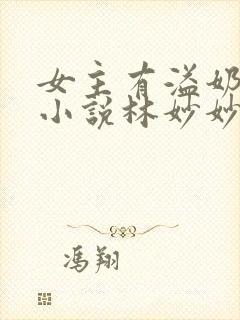 女主有溢奶
小说林妙妙
冯翔